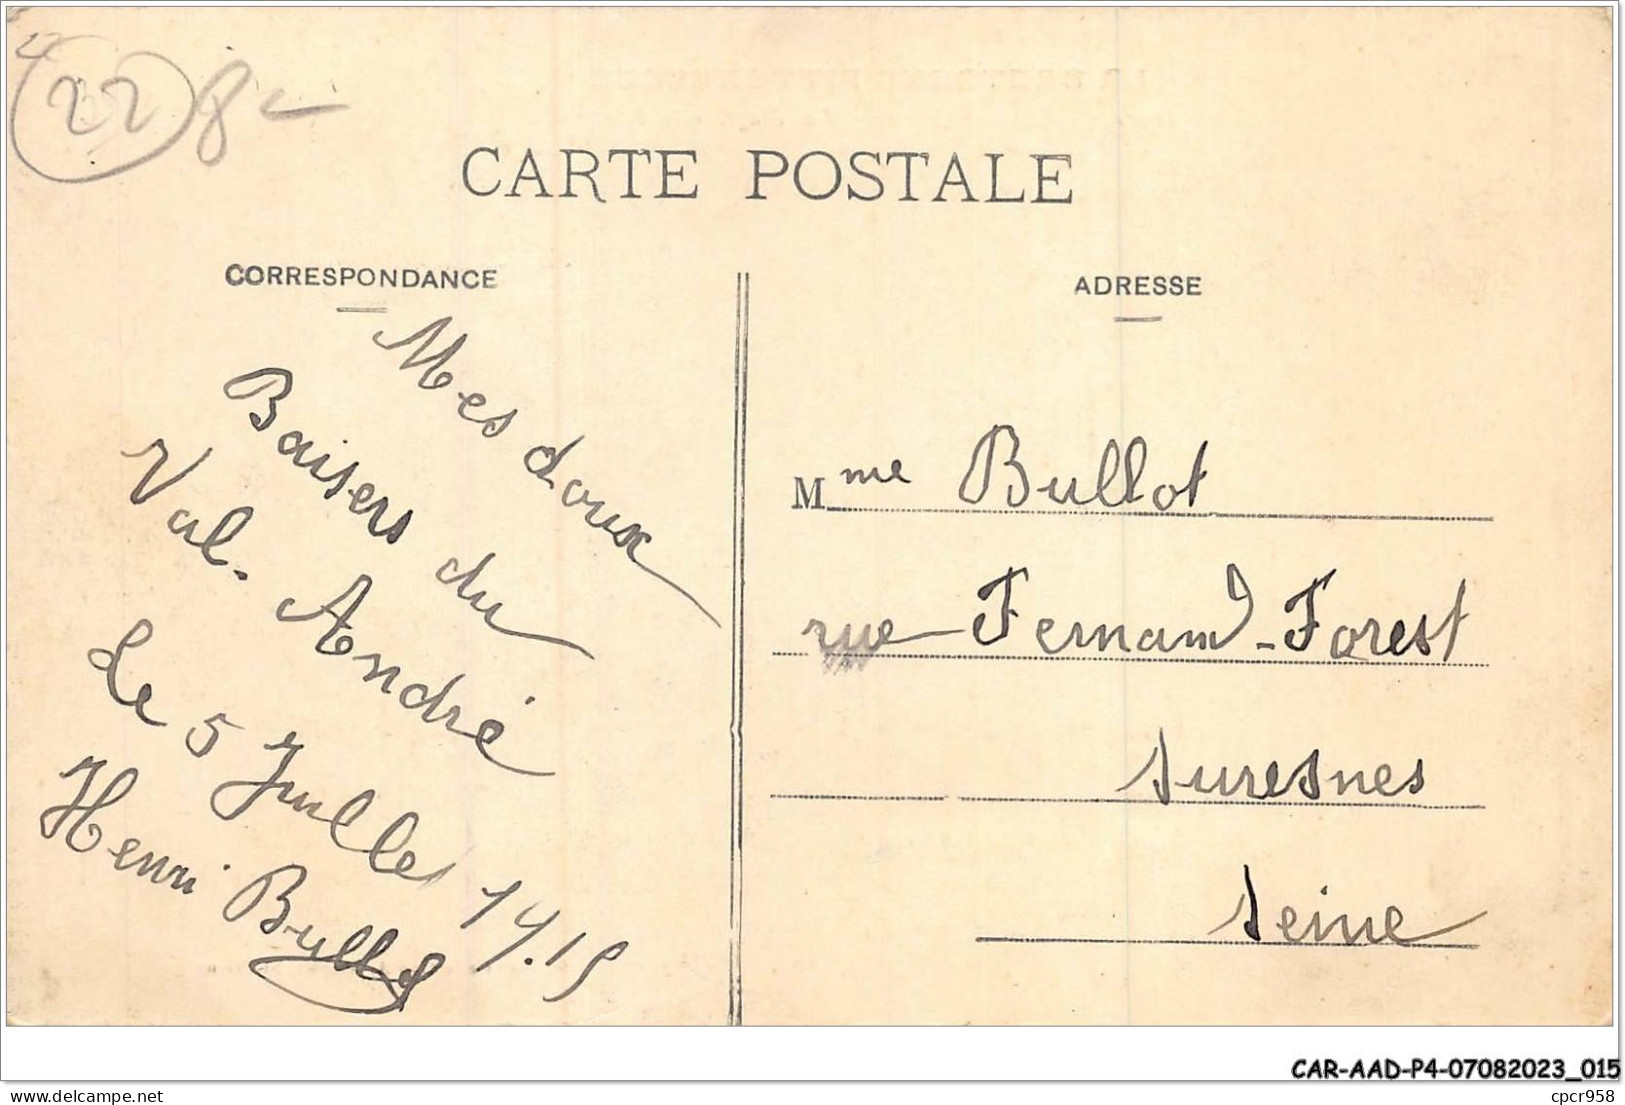 22 8-
CARTE POSTALE
CORRESPONDANCE
Mes doux
Baisers du
Val. André
Le 5 Juillet 1915
Henri Bullot
ADRESSE
Mme Bullot
rue Fernand-Forest
Suresnes
Seine
CAR-AAD-P4-07082023_015
delcampe.net
cpcr958